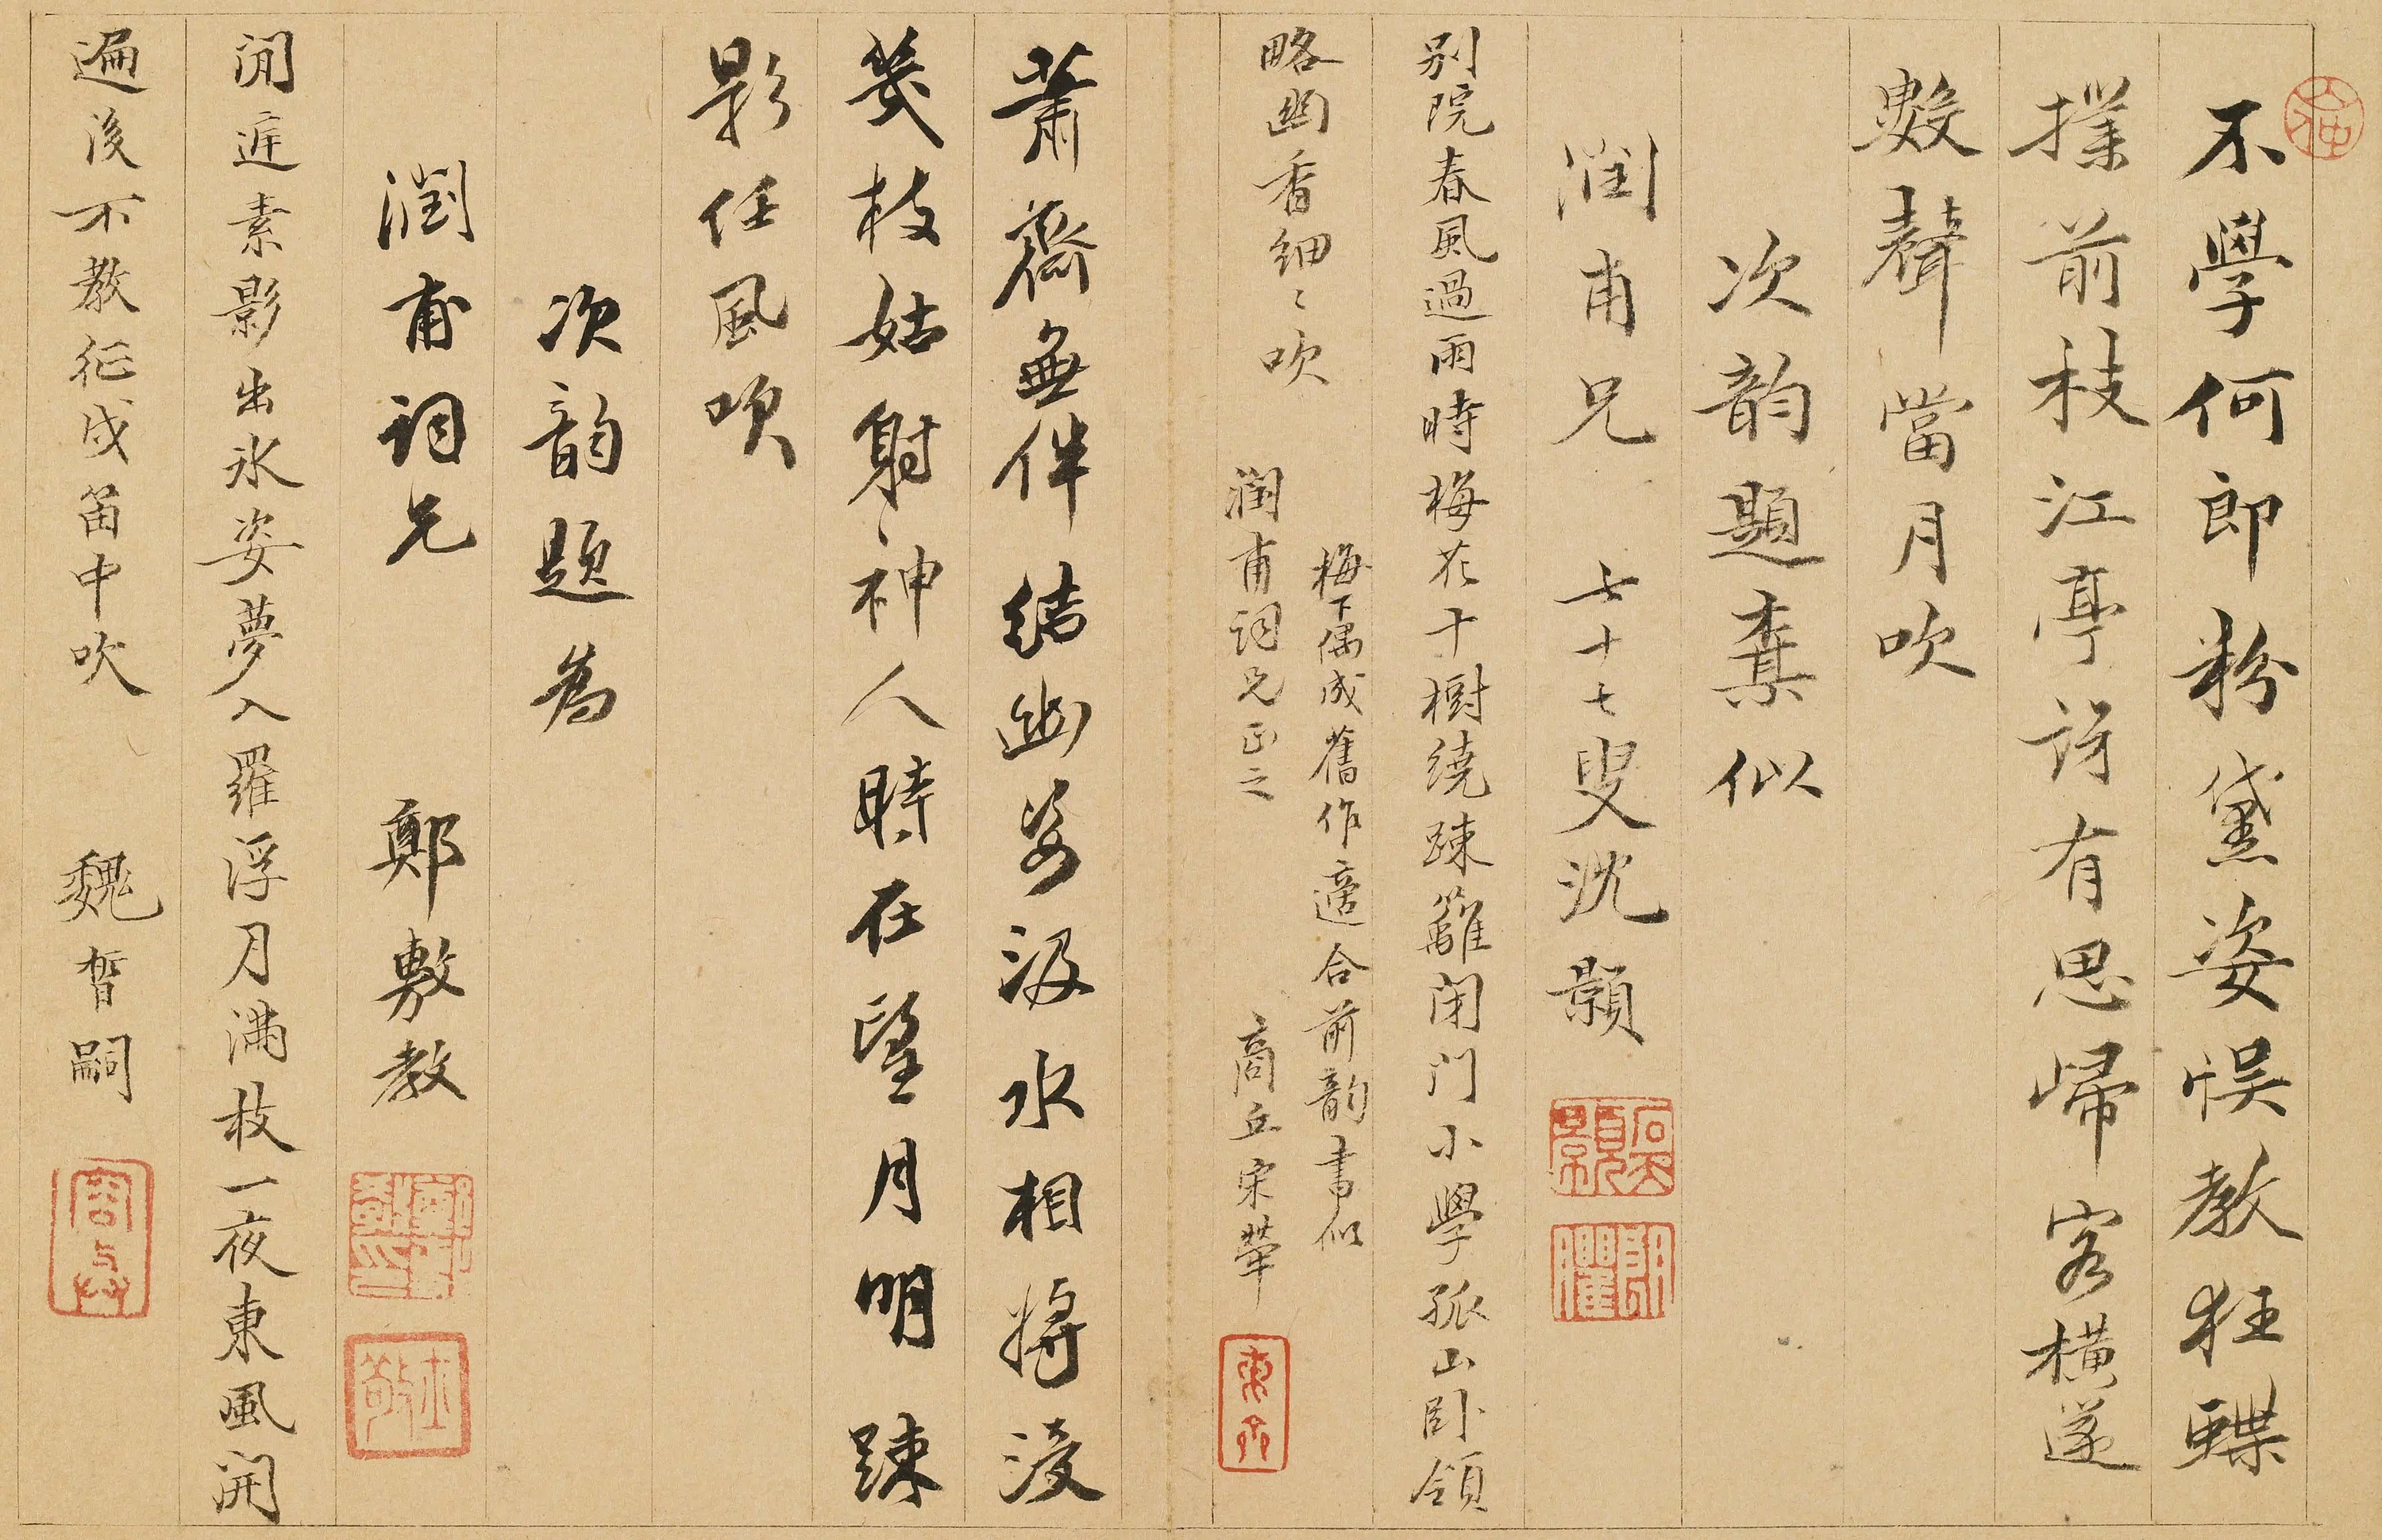 不學何郎粉黛姿悮教狂蝶
撲前枝江亭詩有思歸客橫篴
數聲當月吹
次韵題棄似
潤甫兄 七十七叟沈顥
別院春風過雨時梅花十樹繞踈籬閉门小學孤山卧領
略幽香細〻吹
梅下偶成舊作適合前韵書似
潤甫詞兄正之 商丘宋犖
蕭齋無伴結幽姿汲水相將浸
幾枝姑射〻神人時在望月明踈
影任風吹
次韵題為
潤甫詞兄 鄭敷教
閒庭素影出氷姿夢入羅浮月滿枝一夜東風開
遍後不教征戍笛中吹 魏嗣